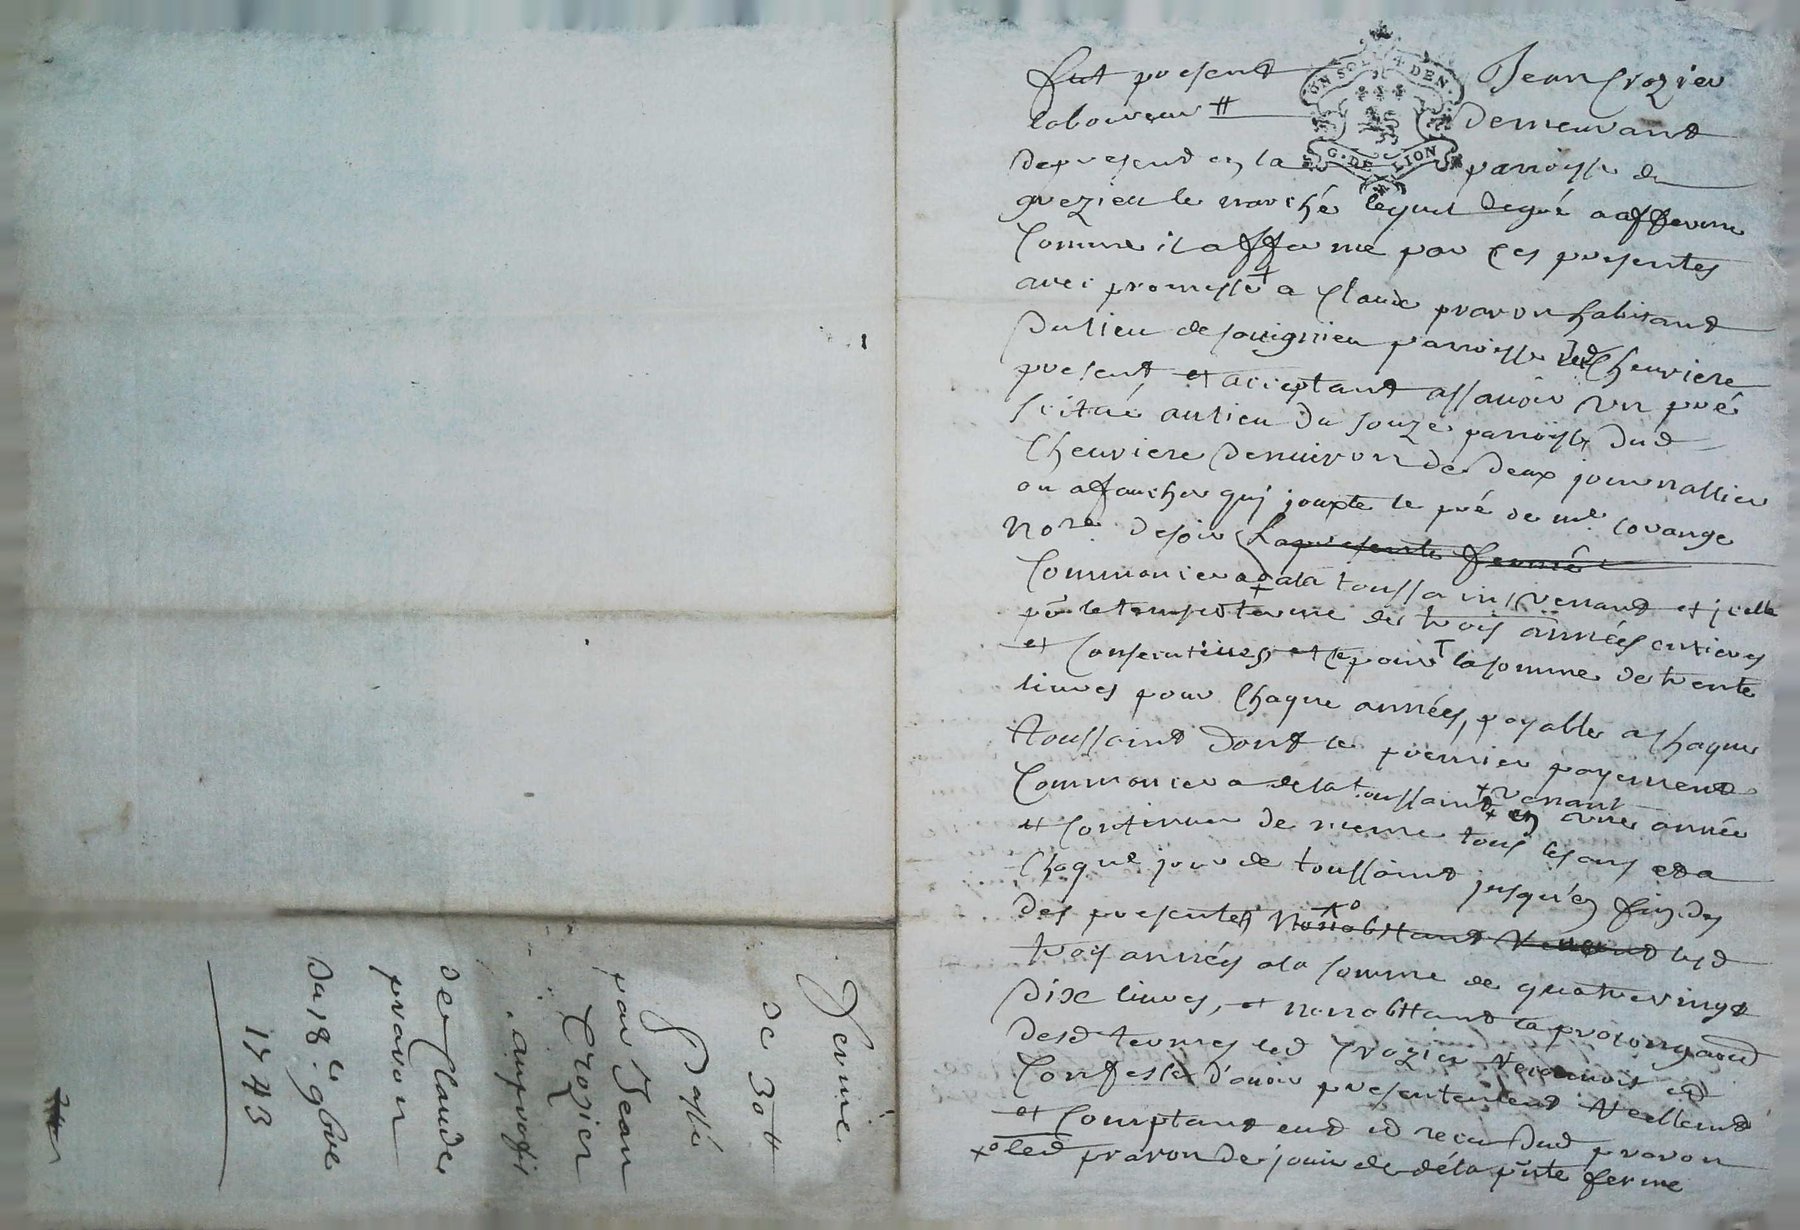 fut present Jean Crozier
laboureur # demeurant
de present en la parroisse de
grezieu le marché lequel de gré a afferme
comme il afferme par ces presentes
avec promesse a Claude pravon habitant
du lieu de souignieu parroisse dud Cheuriere
present et acceptant assauoir un pré
scitué au lieu du souze parroisse dud
Cheuriere denuiron de deux journallier
ou a faucher qui jouxte le pré de me corange
nore. La presente ferme
Commancera a la toussaint venant et icelle
pr le temps et terme de trois années entieres
et consecutiues et ce pour la somme de trente
liures pour chaque années, payable a chaque
toussaint dont le premier payement
commancera de la toussaint venant en une année
et continuer de meme tous les ans et a
chaque jour de toussaint jusqu'en fin des
des presentes nonobstant lesd
trois années a la somme de quatre vingt
dix liures, et nonobstant la
desd termes led Crozier
confesse d'auoir presentement reellemt
et comptant eud et receu dud pravon
xo led pravon de jouir de la pnte ferme
UN SOL 4 DEN.
G. DE LION
ferme
de 30 #
Passé
par Jean
Crozier
au profit
de Claude
pravon
Du 18e. 9bre
1743